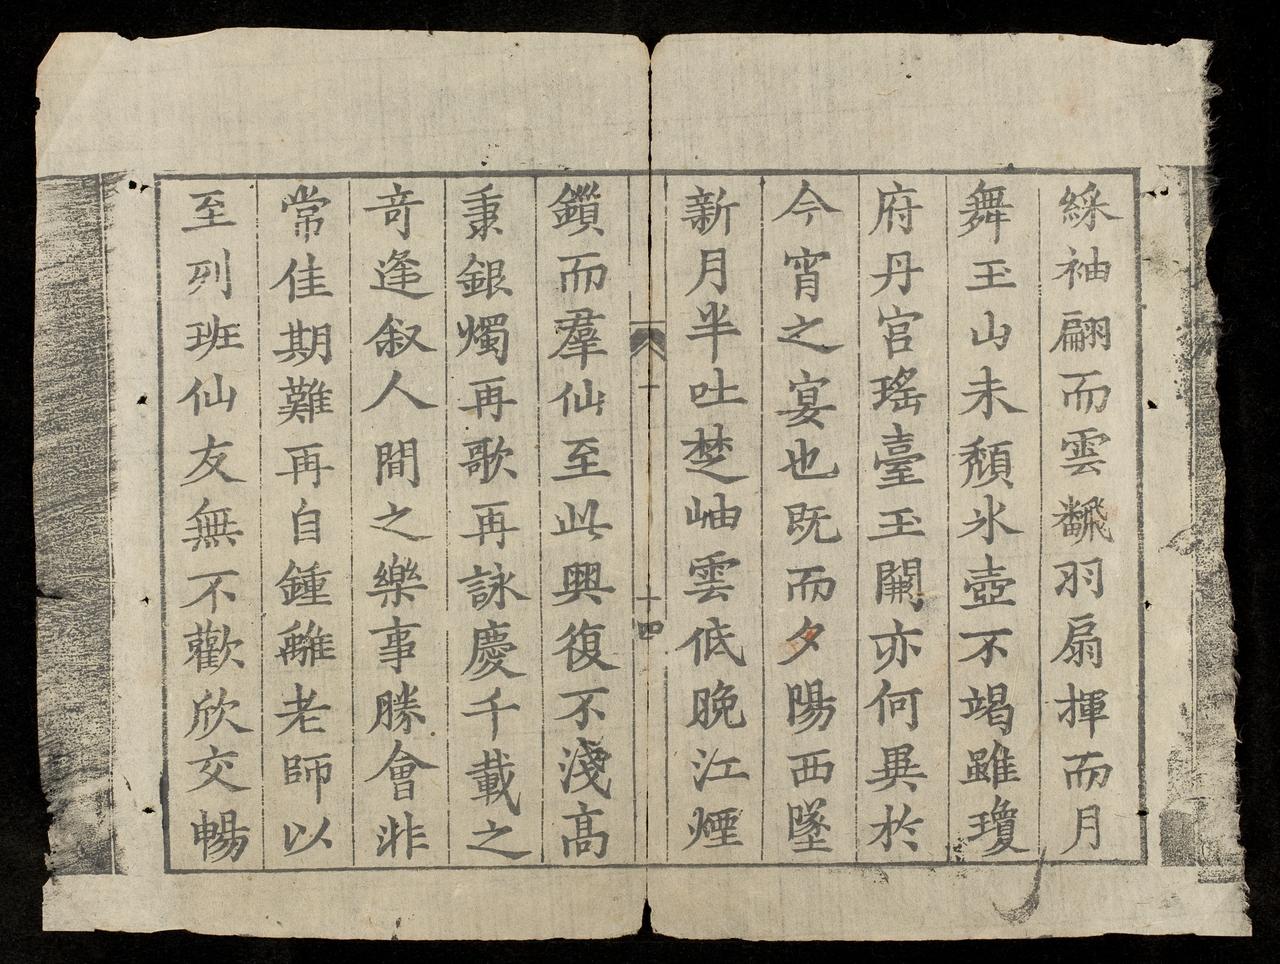 綵袖翩而雲飜羽扇揮而月
舞玉山未頹氷壺不竭雖瓊
府丹宮瑤臺玉闕亦何異於
今宵之宴也既而夕陽西墜
新月半吐楚岫雲低晩江煙
十
十四
鎖而羣仙至此興復不淺高
秉銀燭再歌再詠慶千載之
竒逢叙人間之樂事勝會非
常佳期難再自鍾離老師以
至列班仙友無不歡欣交暢